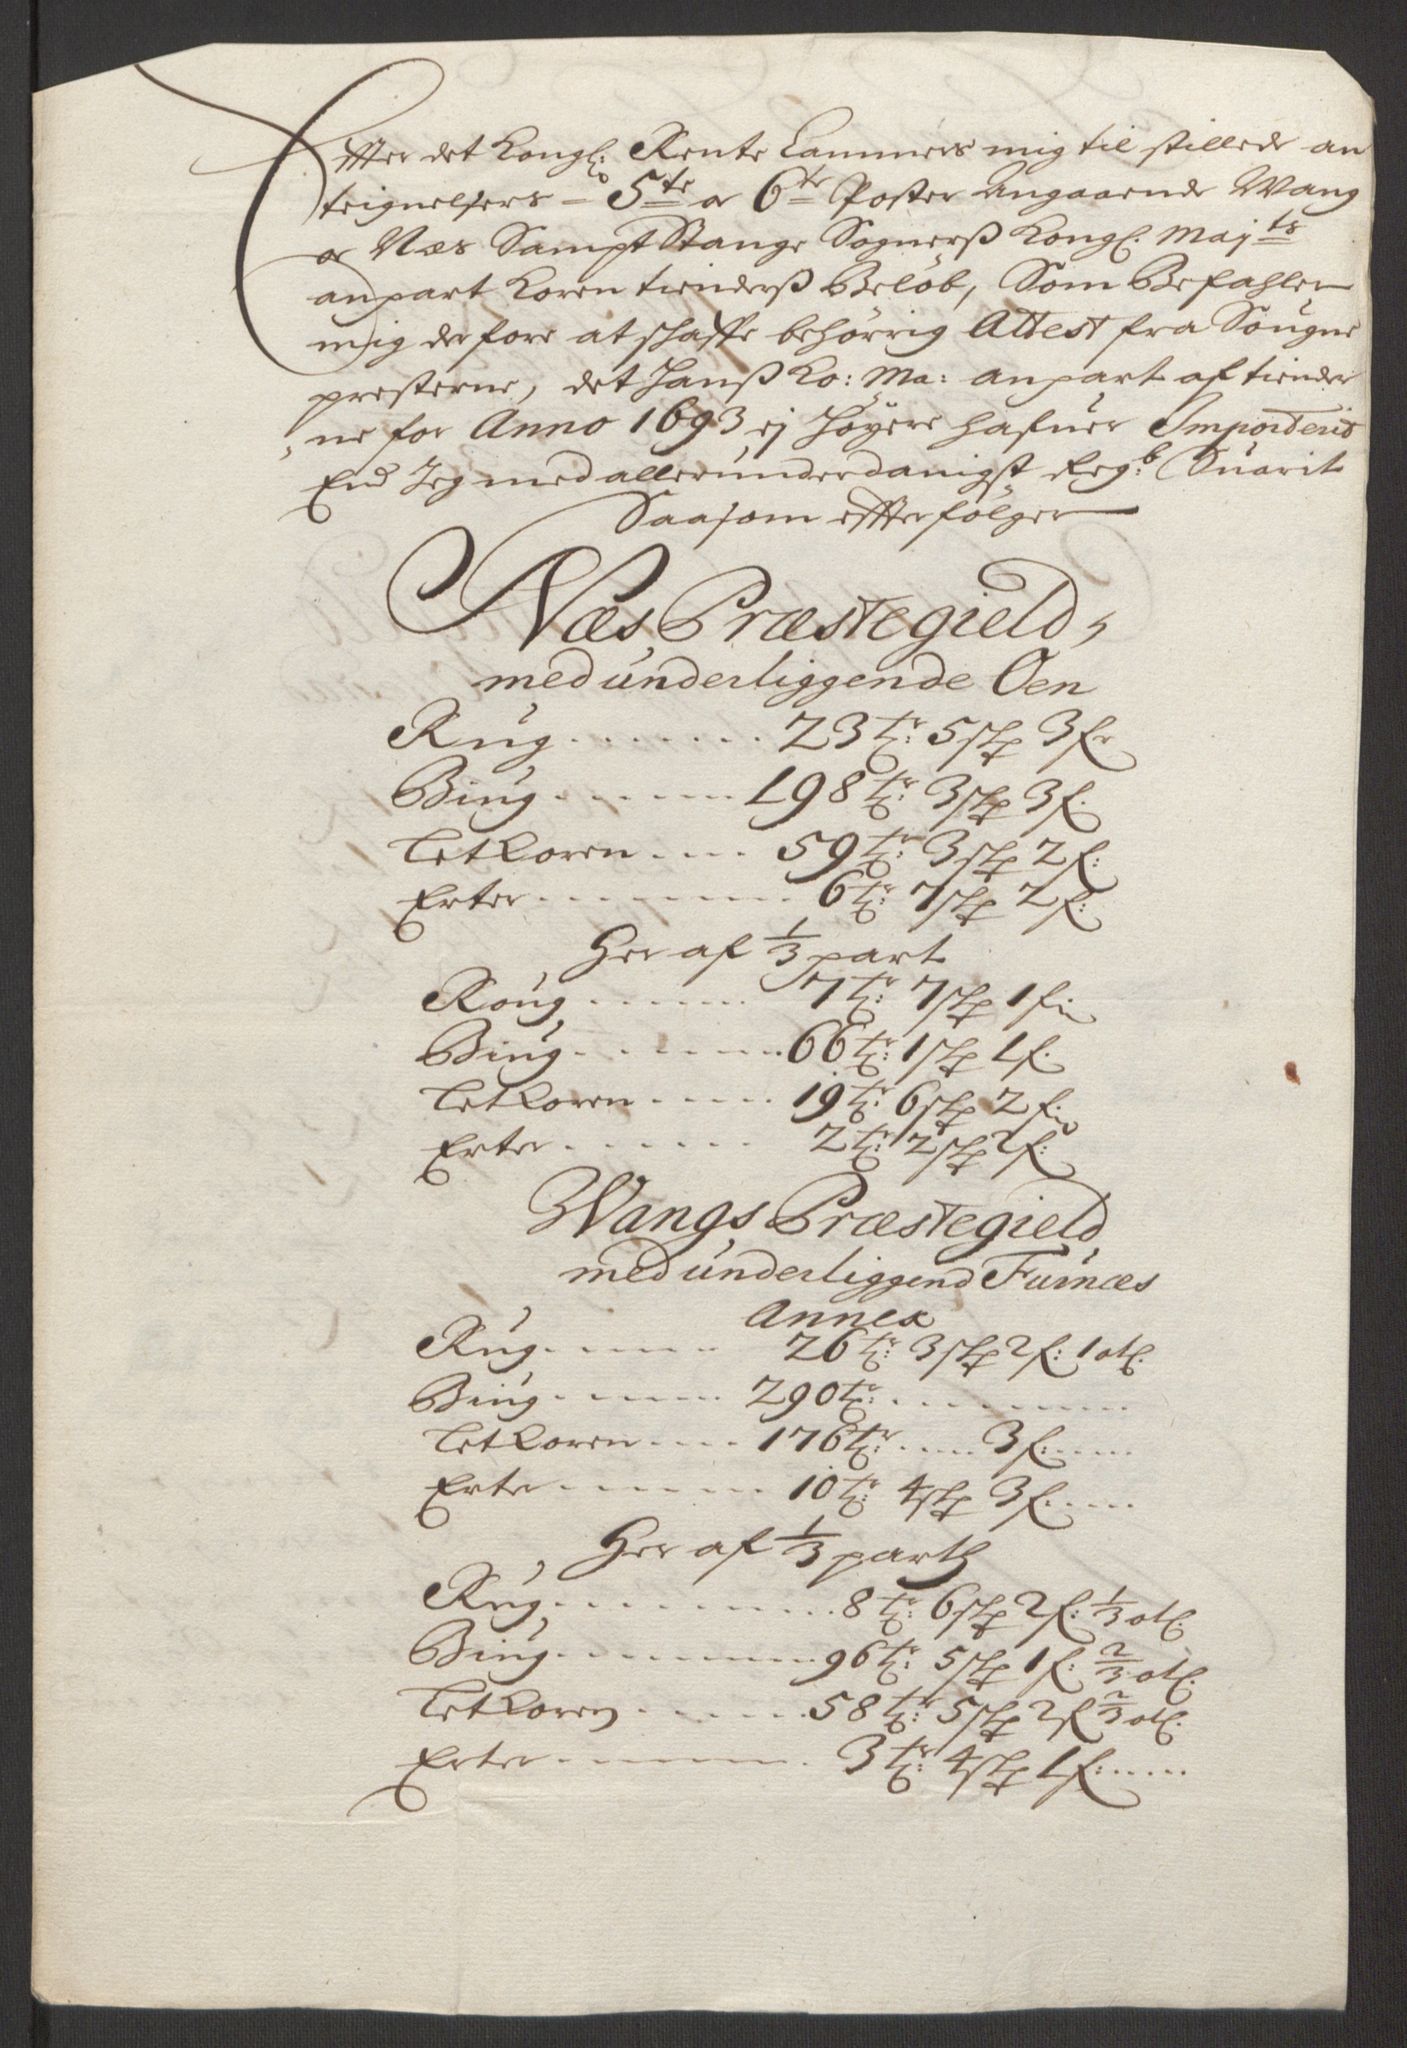 Effter det Kongl: Rente Cammers mig til stillede an
teignelsers 5te og 6te Poster Angaaende Wang
og Næs Sampt Stange Sognerß Kongl. Maj:ts
anpart Koren tienderß Beløb, Som Befahler
mig derfore at schaffe behørrig Attest fra Sougne
presterne, det Hanß Ko: Ma: anpart af tiender
ne for Anno 1693 ej høyere hafuer Importerit
End Jeg med allerunderdanigst Regb. Suarit
Saasom effterfølger
Næs Præstegield,
med underliggende Øen
Rug ....... 23 tr: 5 skp 3 fr
Biug ...... 198 tr: 3 skp 3 f.
Letkoren .... 59 tr: 3 skp 2 f:
Erter ........ 6 tr: 7 skp 2 f:
Her af 1/3 part
Roug ...... 7 tr: 7 skp 1 f:
Biug ....... 66 tr: 1 skp 1 f.
Letkoren ..... 19 tr: 6 skp 2 f:
Erter ....... 2 tr: 2 skp 2 f:
Wangs Præstegield
med underliggend Furnæs
Annex
Rug ..... 26 tr: 3 skp 2 f: 1 otl.
Biug ...... 290 tr: ........
Letkoren .... 176 tr: .... 3 f: ....
Erter ....... 10 tr: 4 skp 3 f: ....
Her af 1/3 parth
Rug ......... 8 tr: 6 skp 2 f: 1/3 otl.
Biug ......... 96 tr: 5 skp 1 f: 2/3 otl.
Letkoren ...... 58 tr: 5 skp 2 f 2/3 otl.
Erter ........ 3 tr: 4 skp 1 f: ....